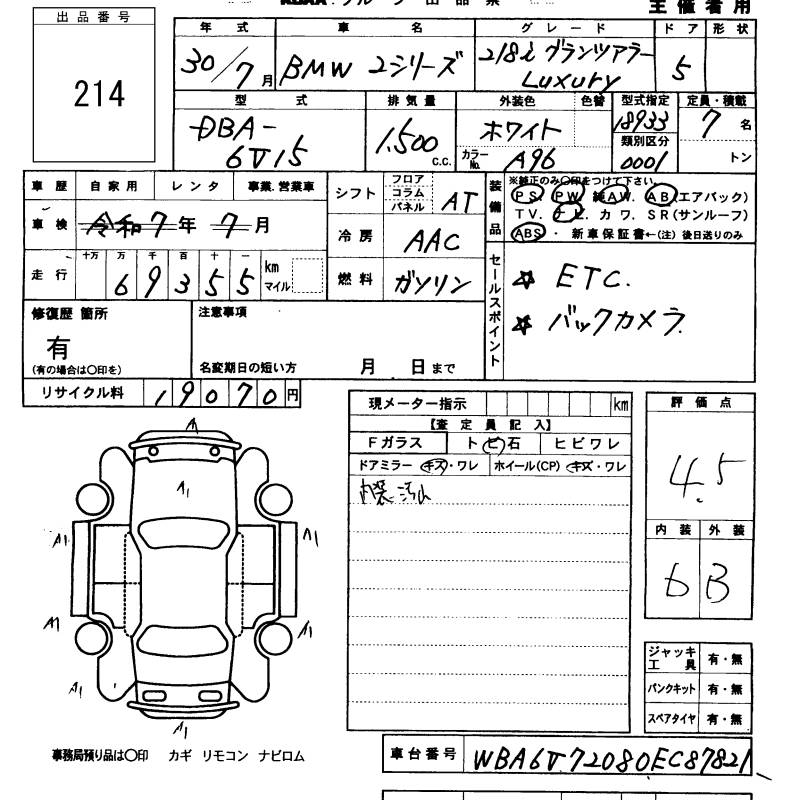 主催者用
出品番号
214
年式 車名 グレード ドア 形状
30/7月 BMW 2シリーズ 218i グランツアラー Luxury 5
型式 排気量 外装色 色替 型式指定 定員・積載
DBA-6V15 1,500 C.C. ホワイト 18933 7名
類別区分
カラーNo. A96 0001 トン
車歴 自家用 レンタ 事業.営業車
シフト フロア コラム パネル AT
車検 令和7年7月
冷房 AAC
走行 十万 万 千 百 十 一
69355 km マイル
燃料 ガソリン
装備品 ※純正のみ〇印をつけて下さい。
PS. PW. 純AW. AB.(エアバック)
TV. ナビ. カワ. SR(サンルーフ)
ABS ・ 新車保証書←(注) 後日送りのみ
セールスポイント
☆ ETC.
☆ バックカメラ
修復歴 箇所
有
(有の場合は〇印を)
注意事項
名変期日の短い方 月 日まで
リサイクル料 19070円
現メーター指示 km
【査定員記入】
Fガラス トビ石 ヒビワレ
ドアミラー キズ・ワレ ホイール(CP) キズ・ワレ
内装汚れ
評価点
4.5
内装 外装
b B
A1
A1 A1
A1 A1
A1 A1
A1
ジャッキ工具 有・無
パンクキット 有・無
スペアタイヤ 有・無
事務局預り品は〇印 カギ リモコン ナビロム
車台番号 WBA6V72080EC87821